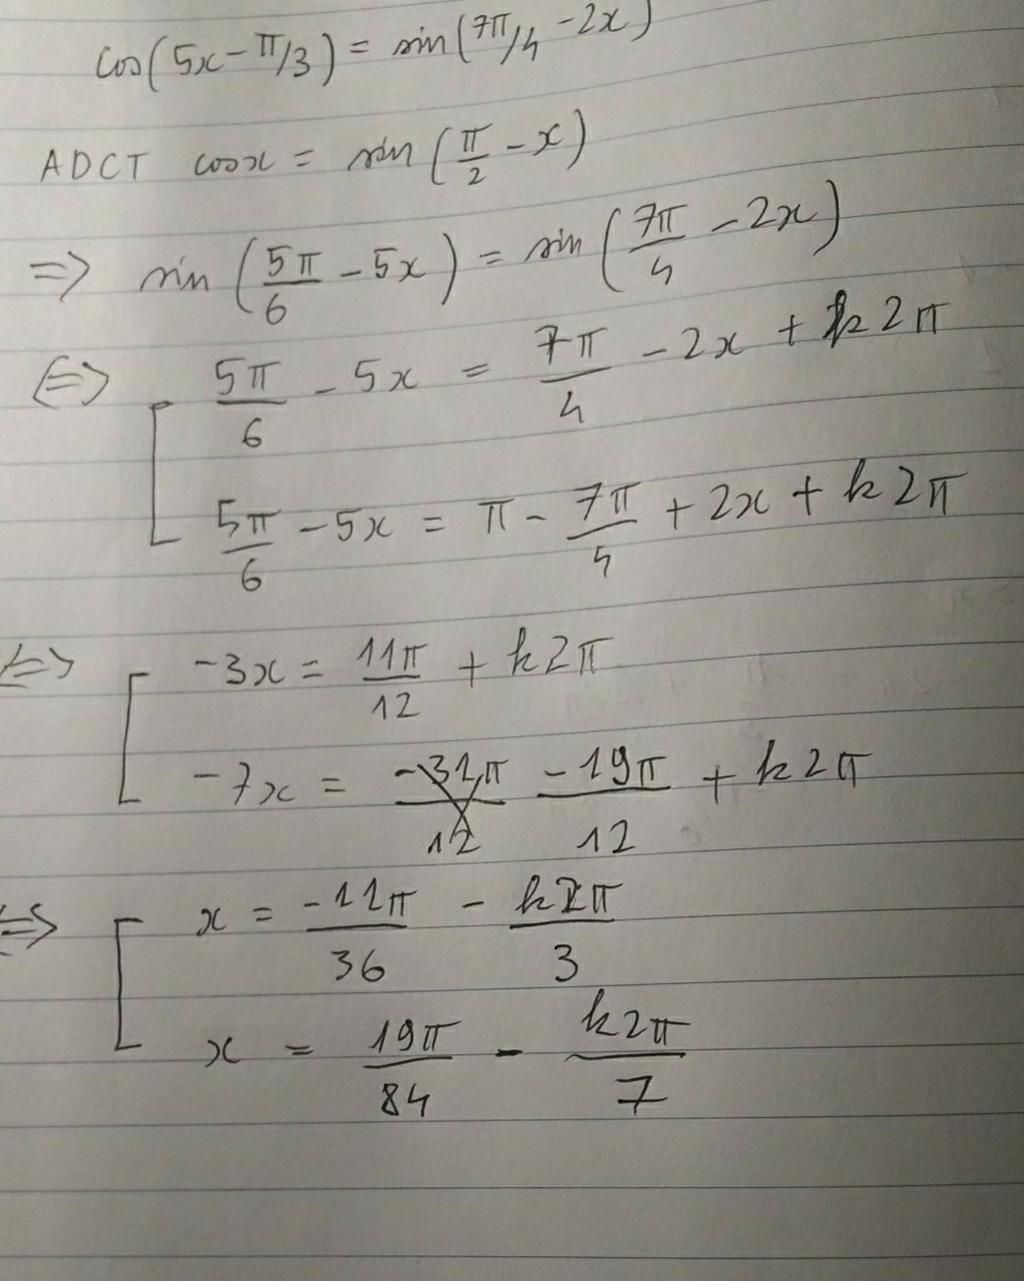 cos(5x - π/3) = sin(7π/4 - 2x)
ADCT cosx = sin(π/2 - x)
=> sin(5π/6 - 5x) = sin(7π/4 - 2x)
<=> [ 5π/6 - 5x = 7π/4 - 2x + k2π
5π/6 - 5x = π - 7π/4 + 2x + k2π
<=> [ -3x = 11π/12 + k2π
-7x = -31π/12 -19π/12 + k2π
<=> [ x = -11π/36 - k2π/3
x = 19π/84 - k2π/7